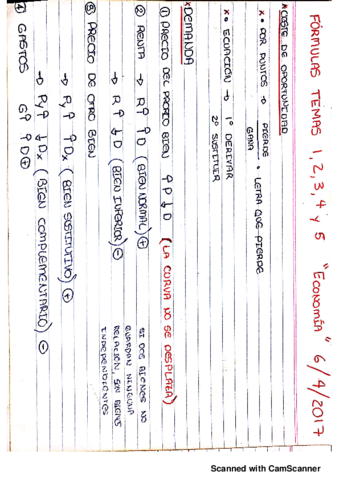 FÓRMULAS TEMAS 1, 2, 3, 4 y 5 "ECONOMÍA" 6/4/2017
* COSTE DE OPORTUNIDAD
x • POR PUNTOS → PIERDE / GANA · LETRA QUE PIERDE
x • ECUACIÓN → 1º DERIVAR
2º SUSTITUIR
* DEMANDA
① PRECIO DEL PROPIO BIEN ↑P ↓D (LA CURVA NO SE DESPLAZA)
② RENTA → R↑ ↑D (BIEN NORMAL) ⊕
→ R↑ ↓D (BIEN INFERIOR) ⊖
SI DOS BIENES NO
GUARDAN NINGUNA
RELACIÓN, SON BIENES
INDEPENDIENTES
③ PRECIO DE OTRO BIEN
→ Py↑ ↑Dx (BIEN SUSTITUTIVO) ⊕
→ Py↑ ↓Dx (BIEN COMPLEMENTARIO) ⊖
④ GASTOS G↑ ↑D ⊕
Scanned with CamScanner